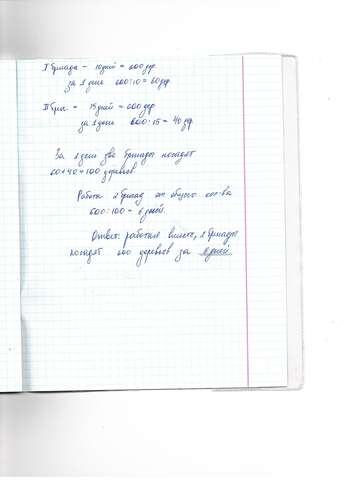 I бригада - 10дней = 600 дер
за 1 день 600:10 = 60 дер
II бриг = 15 дней = 600 дер
за 1 день 600:15 = 40 дер
За 1 день две бригады посадят
60+40=100 деревьев.
Работа 2 бригад от общего кол-ва
600:100 = 6 дней.
Ответ: работая вместе, 2 бригады
посадят 600 деревьев за 6 дней.